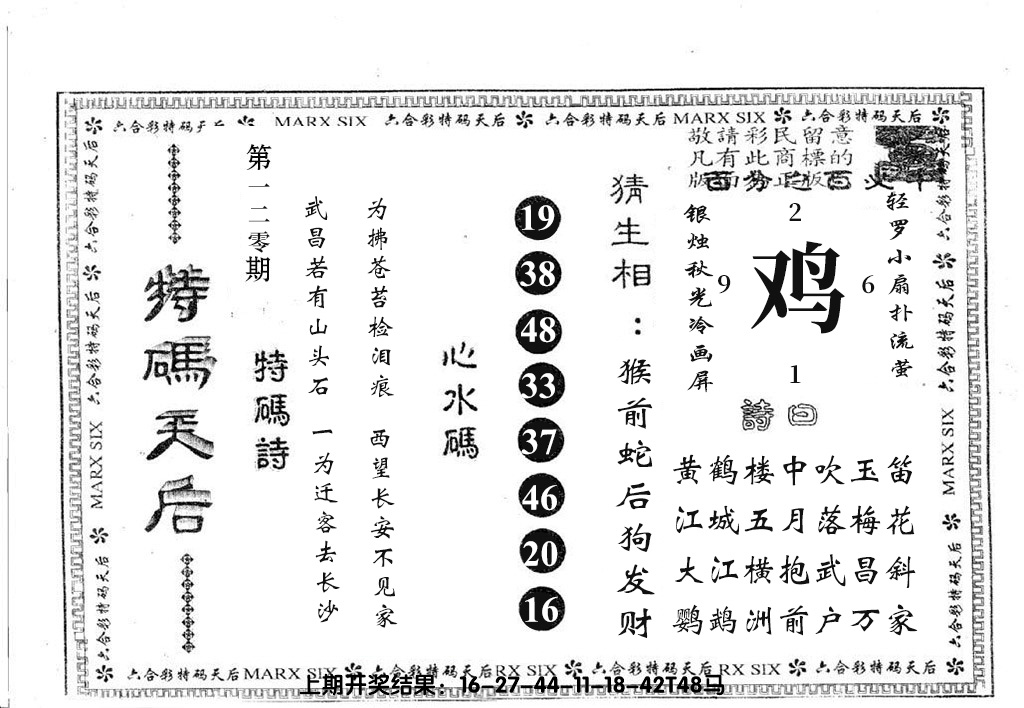 六合彩特码天后 MARX SIX 六合彩特码天后 六合彩特码天后 MARX SIX 六合彩特码天后
敬請彩民留意
凡有此商標的
特碼天后
第一二零期
特碼詩
武昌若有山头石 一为迁客去长沙
为拂苍苔检泪痕 西望长安不见家
心水碼
19
38
48
33
37
46
20
16
猜生相：猴前蛇后狗发财
银烛秋光冷画屏
2
9 鸡 6
1
轻罗小扇扑流萤
詩曰
黄鹤楼中吹玉笛
江城五月落梅花
大江横抱武昌斜
鹦鹉洲前户万家
六合彩特码天后 MARX SIX 六合彩特码天后
六合彩特码天后 MARX SIX 六合彩特码天后
六合彩特码天后 MARX SIX 六合彩特码天后 RX SIX 六合彩特码天后 RX SIX 六合彩特码天后
上期开奖结果：16-27-44-11-18-42T48马